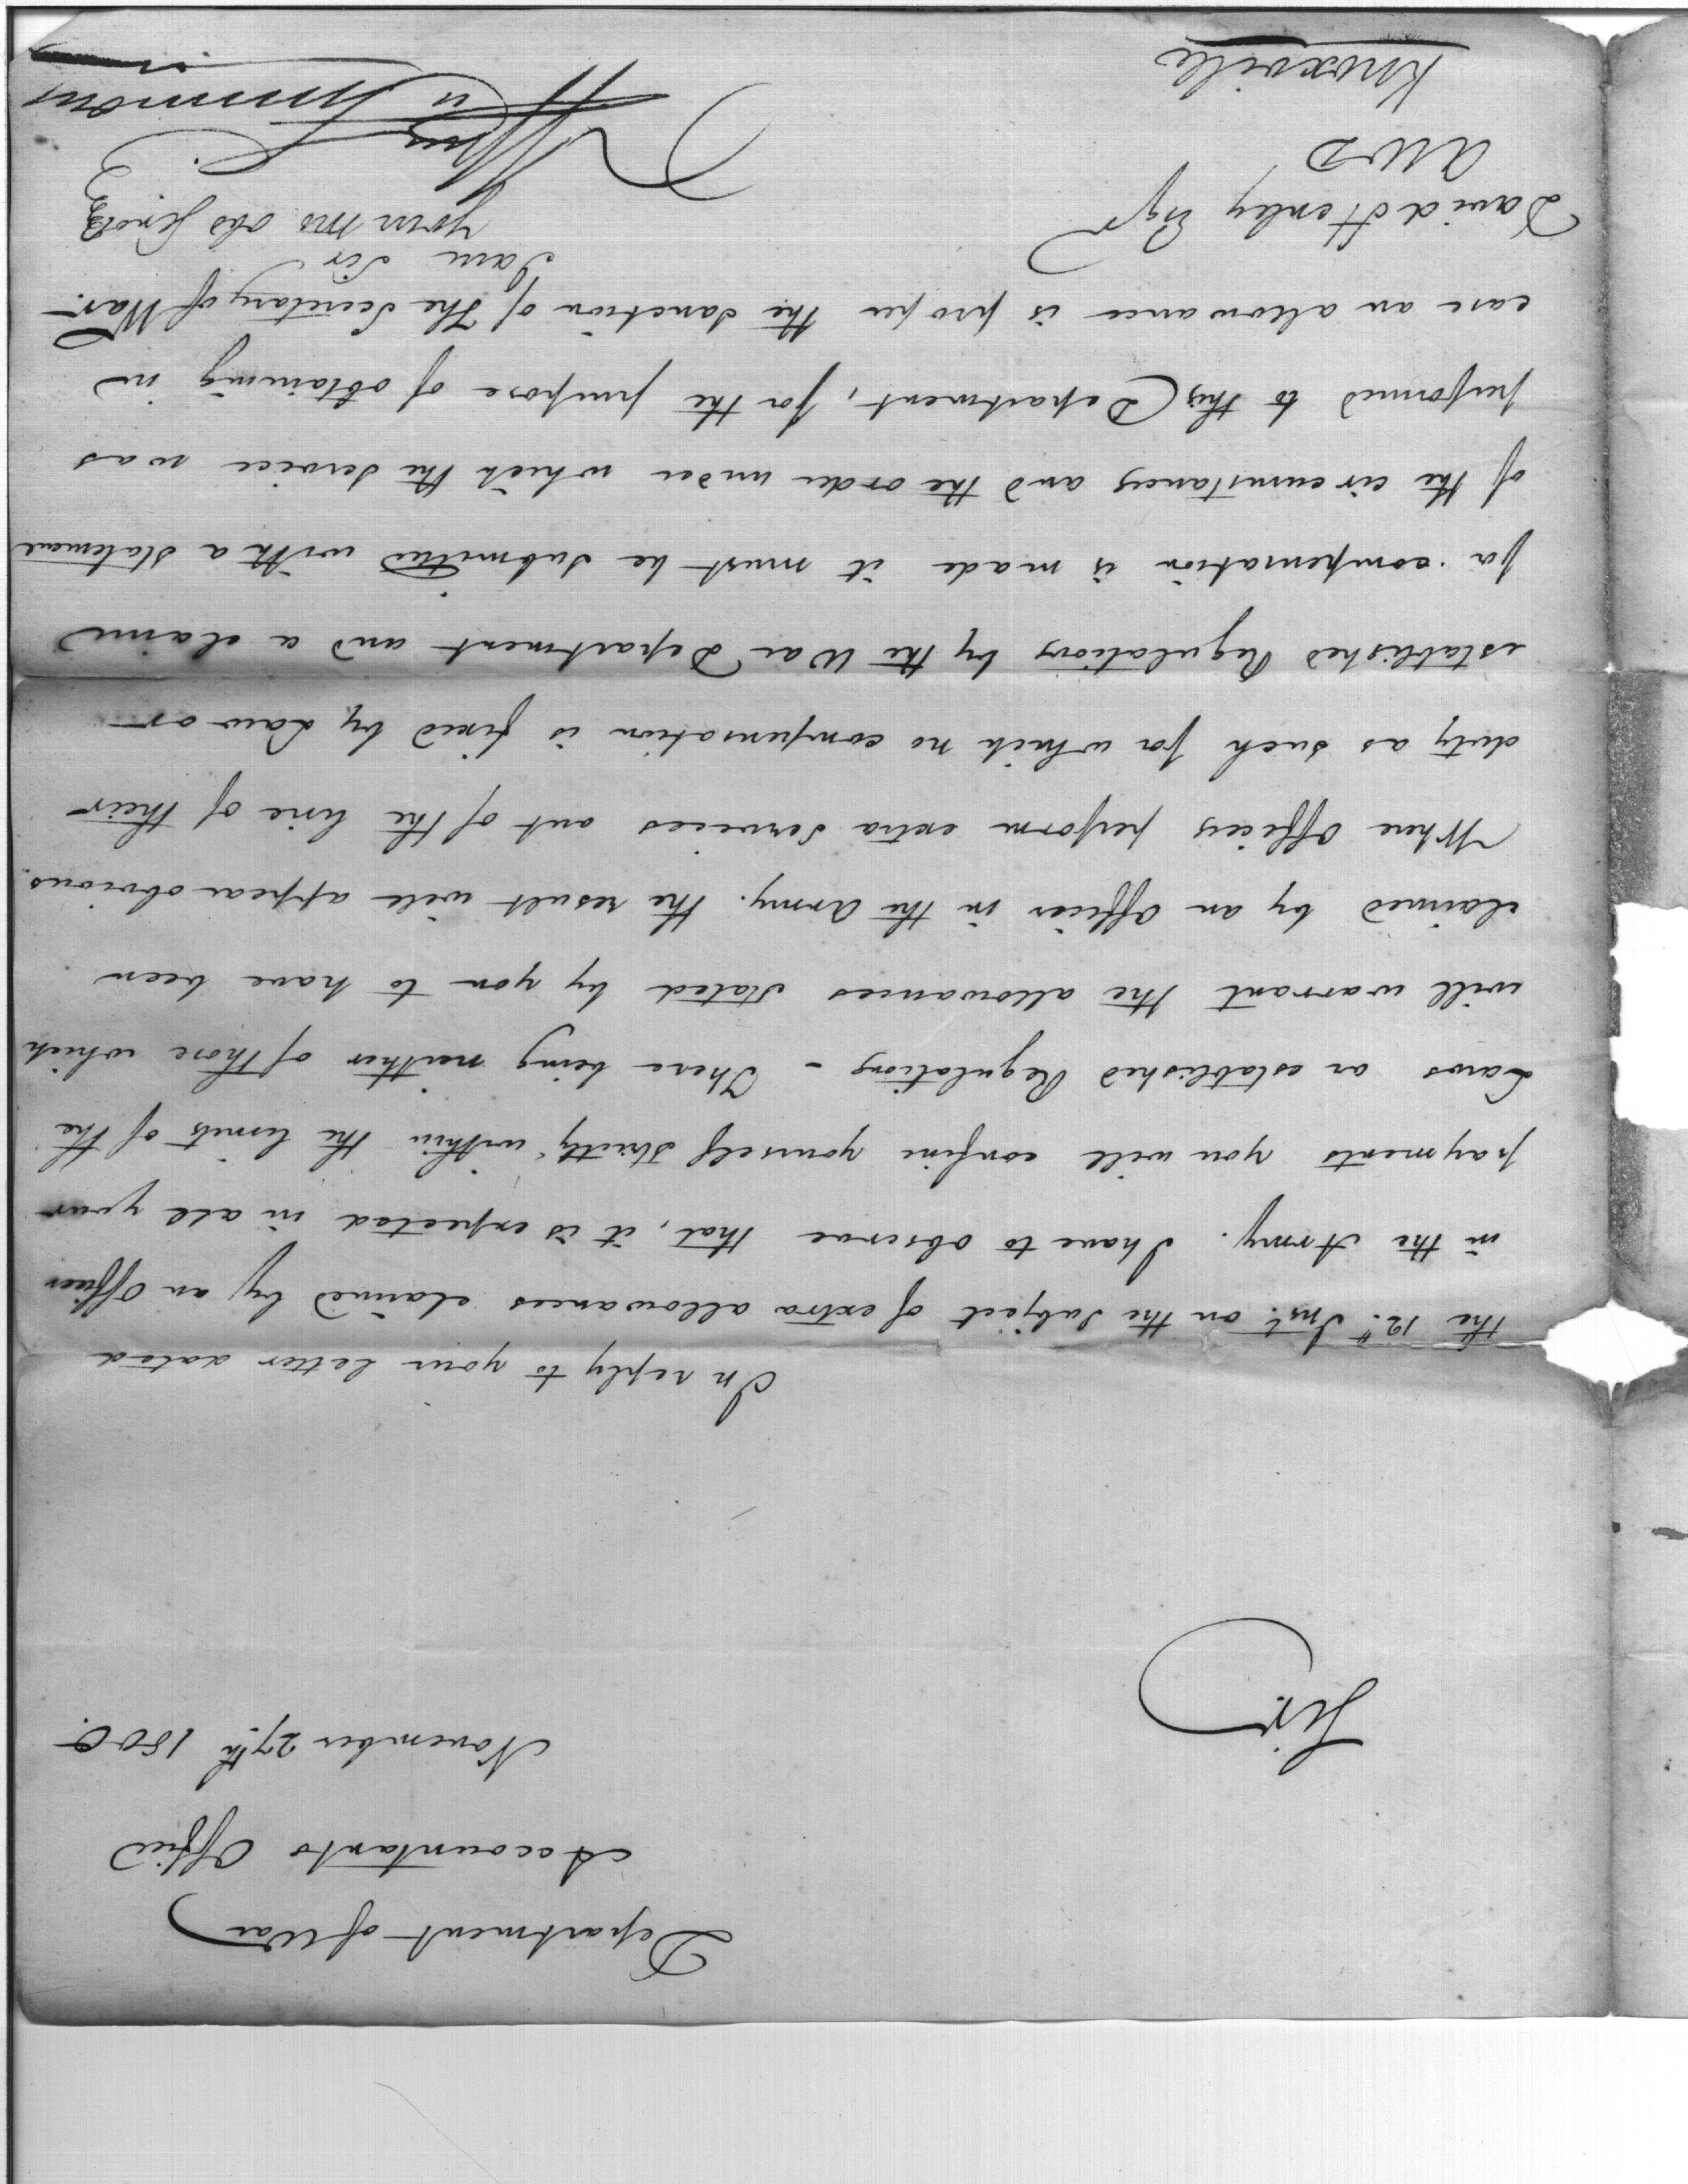 Department of War
Accountants Office
November 27th 1800.
Sir.
In reply to your letter dated
the 12th Inst. on the Subject of extra allowances claimed by an Officer
in the Army. I have to observe that, it is expected in all your
payments you will confine yourself strictly within the limits of the
Laws or established Regulations - There being neither of those which
will warrant the allowances stated by you to have been
claimed by an Officer in the Army. the result will appear obvious.
Where Officers perform extra Services out of the line of their
duty as such for which no compensation is fixed by Law or
established Regulations by the War Department and a claim
for compensation is made it must be submitted with a Statement
of the circumstances and the order under which the Service was
performed to this Department, for the purpose of obtaining in
case an allowance is proper the Sanction of the Secretary of War.
I am Sir
Your Mo Obd Servt
Wm Simmons
David Henley Esqr
AWD
Knoxville